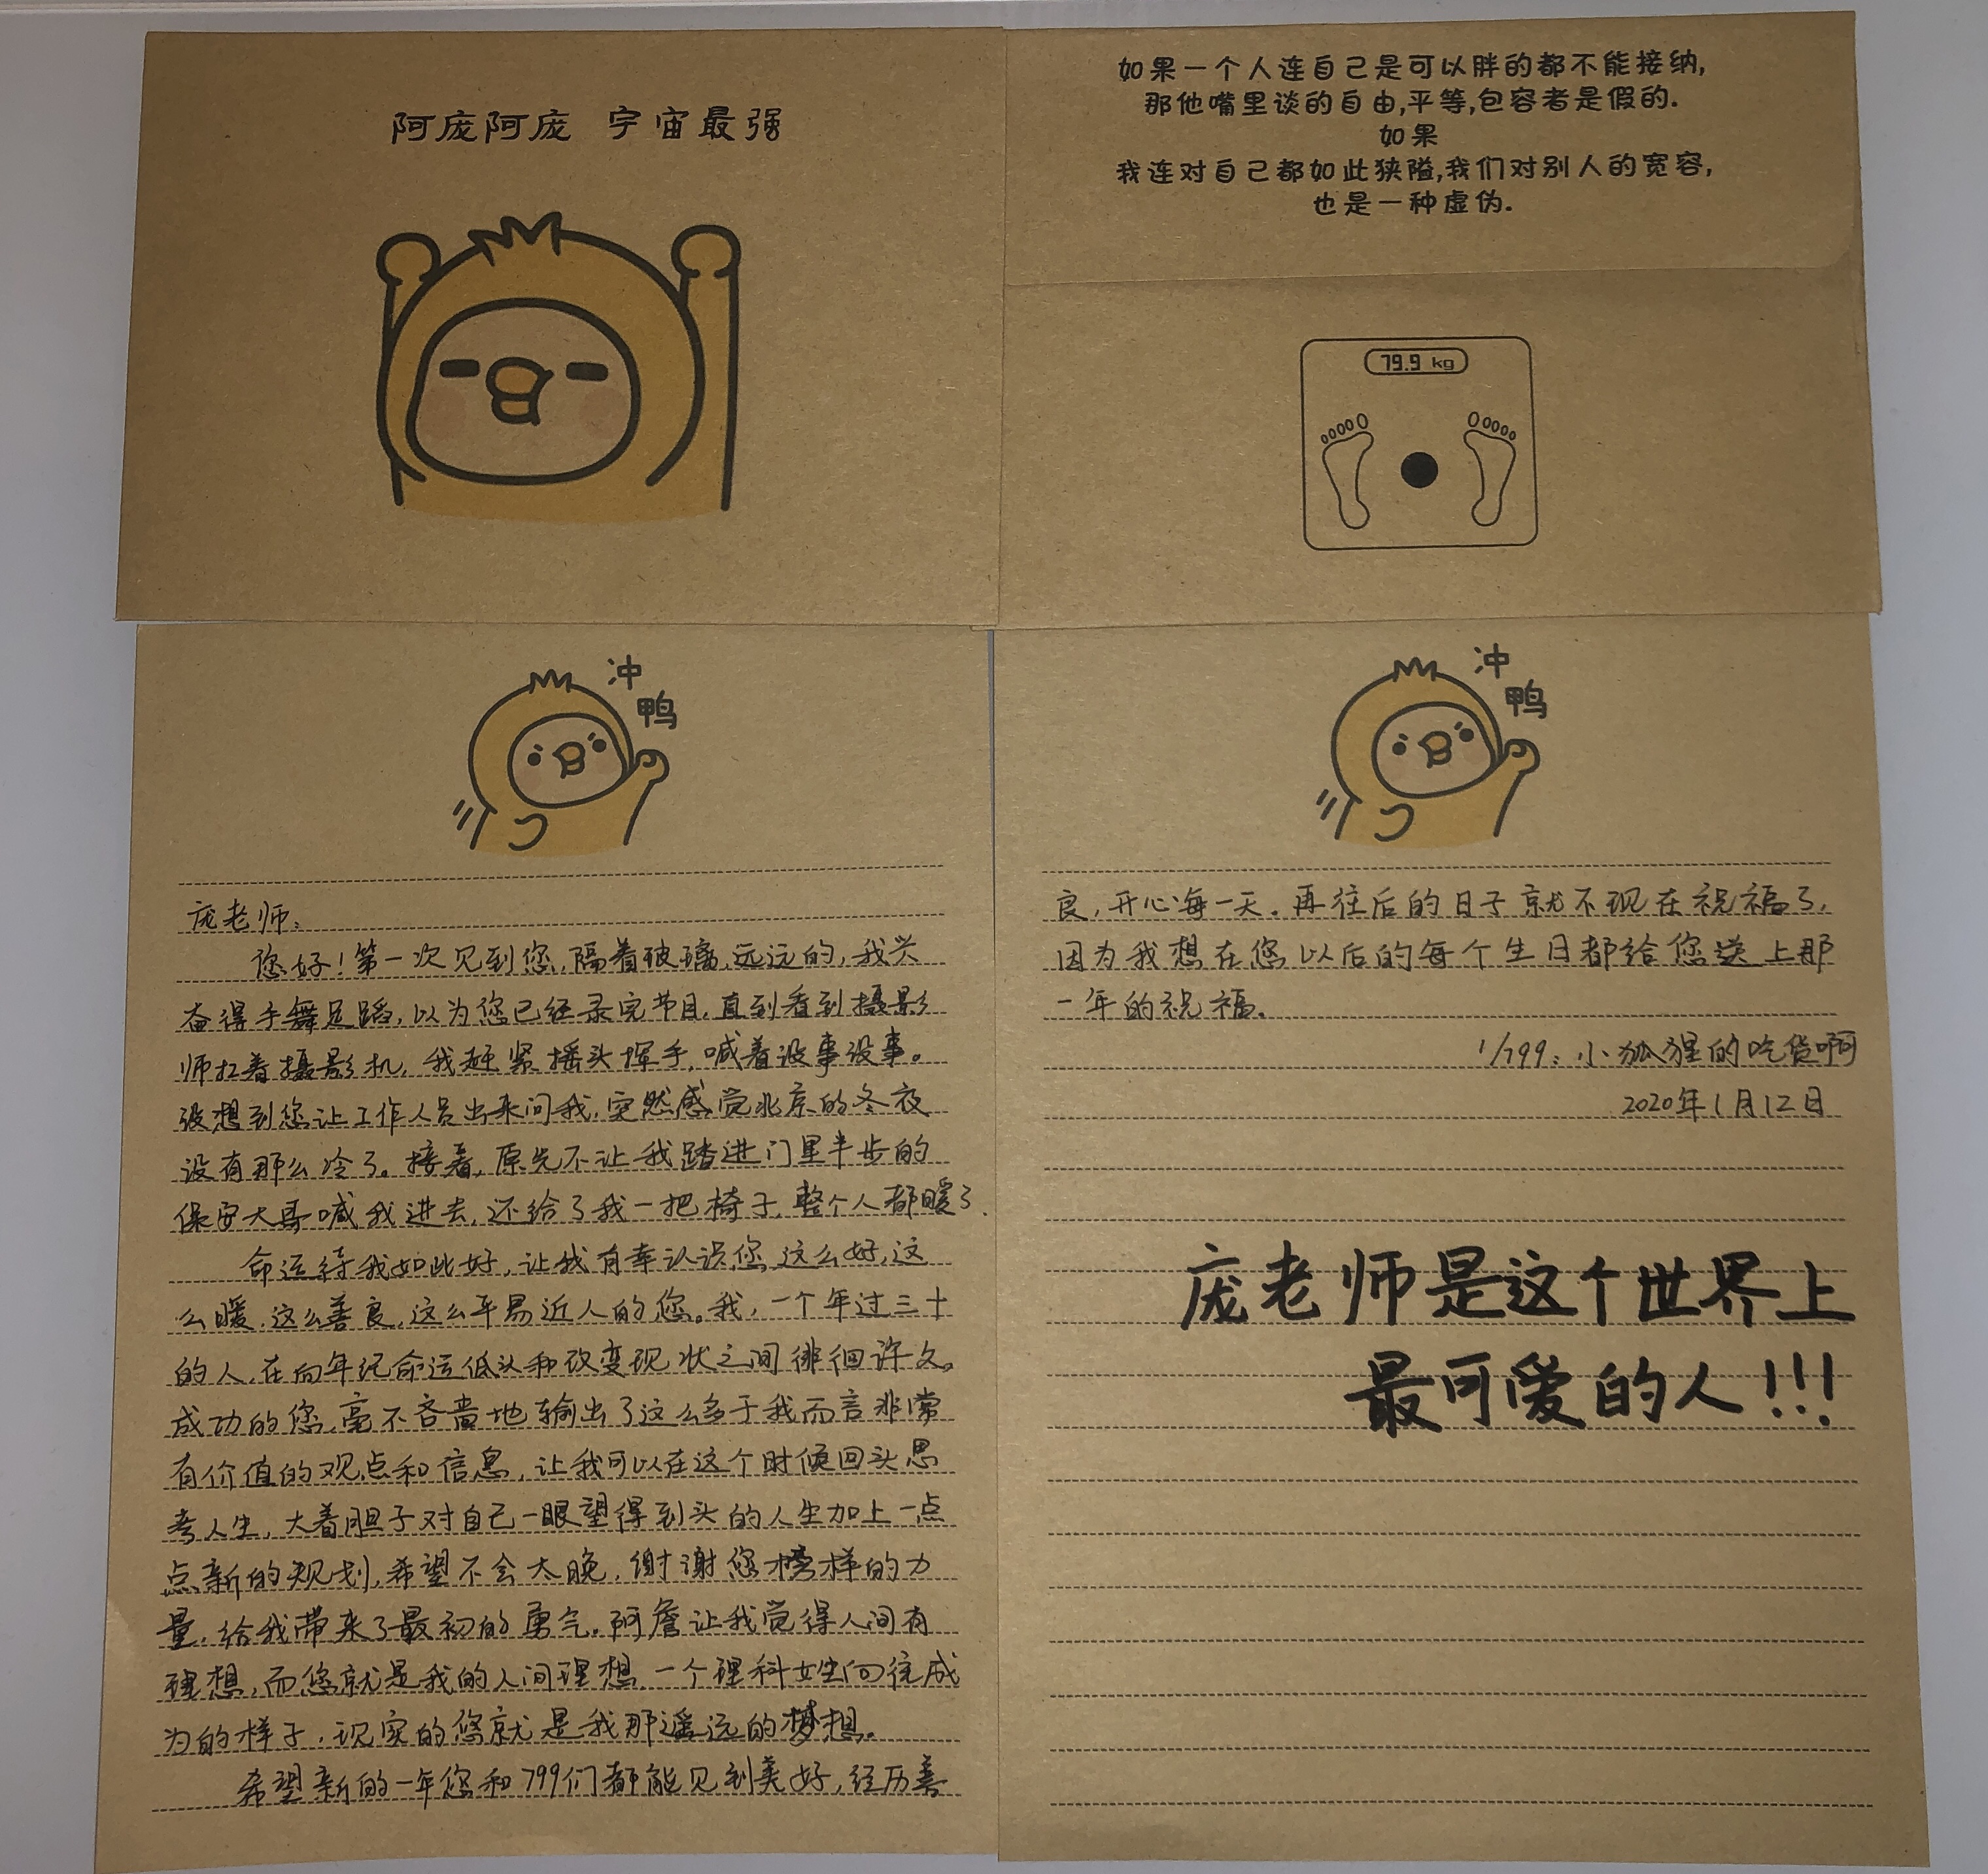 阿庞阿庞 宇宙最强
如果一个人连自己是可以胖的都不能接纳,
那他嘴里谈的自由,平等,包容者是假的.
如果
我连对自己都如此狭隘,我们对别人的宽容,
也是一种虚伪.
79.9 kg
冲
鸭
庞老师:
您好!第一次见到您,隔着玻璃,远远的,我兴
奋得手舞足蹈,以为您已经录完节目,直到看到摄影
师扛着摄影机,我赶紧摇头挥手,喊着没事没事。
没想到您让工作人员出来问我,突然感觉北京的冬夜
没有那么冷了。接着,原先不让我踏进门里半步的
保安大哥喊我进去,还给了我一把椅子,整个人都暖了.
命运待我如此好,让我有幸认识您,这么好,这
么暖,这么善良,这么平易近人的您。我,一个年过三十
的人,在向年纪命运低头和改变现状之间徘徊许久。
成功的您,毫不吝啬地输出了这么多于我而言非常
有价值的观点和信息,让我可以在这个时候回头思
考人生,大着胆子对自己一眼望得到头的人生加上一点
点新的规划,希望不会太晚,谢谢您榜样的力
量,给我带来了最初的勇气。阿詹让我觉得人间有
理想,而您就是我的人间理想.一个理科女生向往成
为的样子,现实的您就是我那遥远的梦想。
希望新的一年您和799们都能见到美好,经历善
冲
鸭
良,开心每一天.再往后的日子就不现在祝福了,
因为我想在您以后的每个生日都给您送上那
一年的祝福.
1/799:小狐狸的吃货啊
2020年1月12日
庞老师是这个世界上
最可爱的人!!!